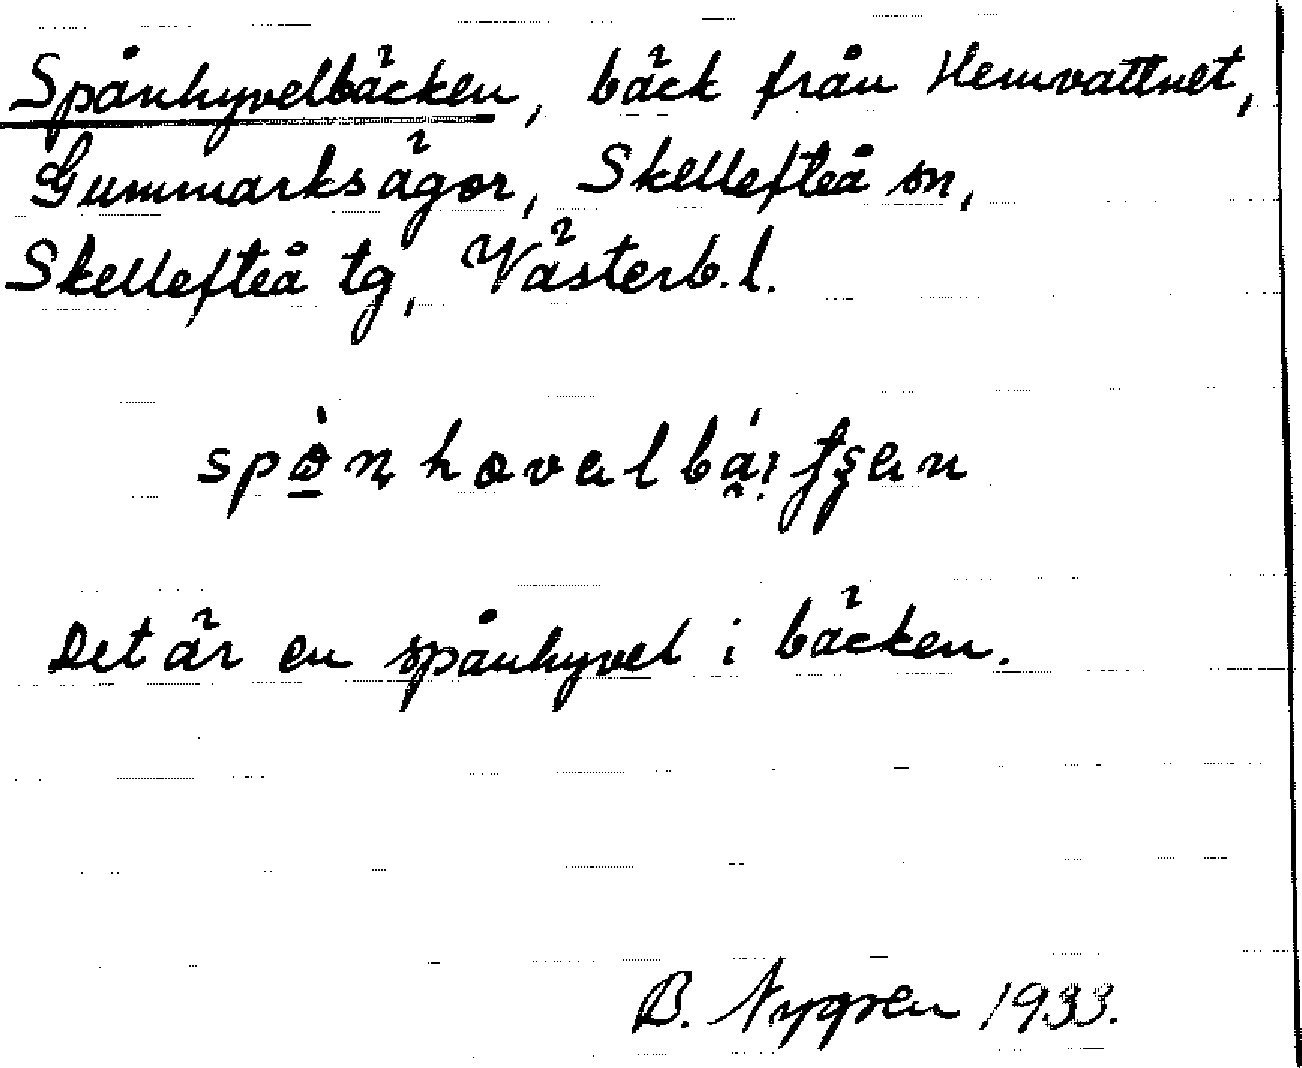 Spånhyvelbäcken, bäck från Hemvattnet,
Gummarksägor, Skellefteå sn,
Skellefteå tg, Västerb. l.
Det är en spånhyvel i bäcken.
B. Nygren 1933.